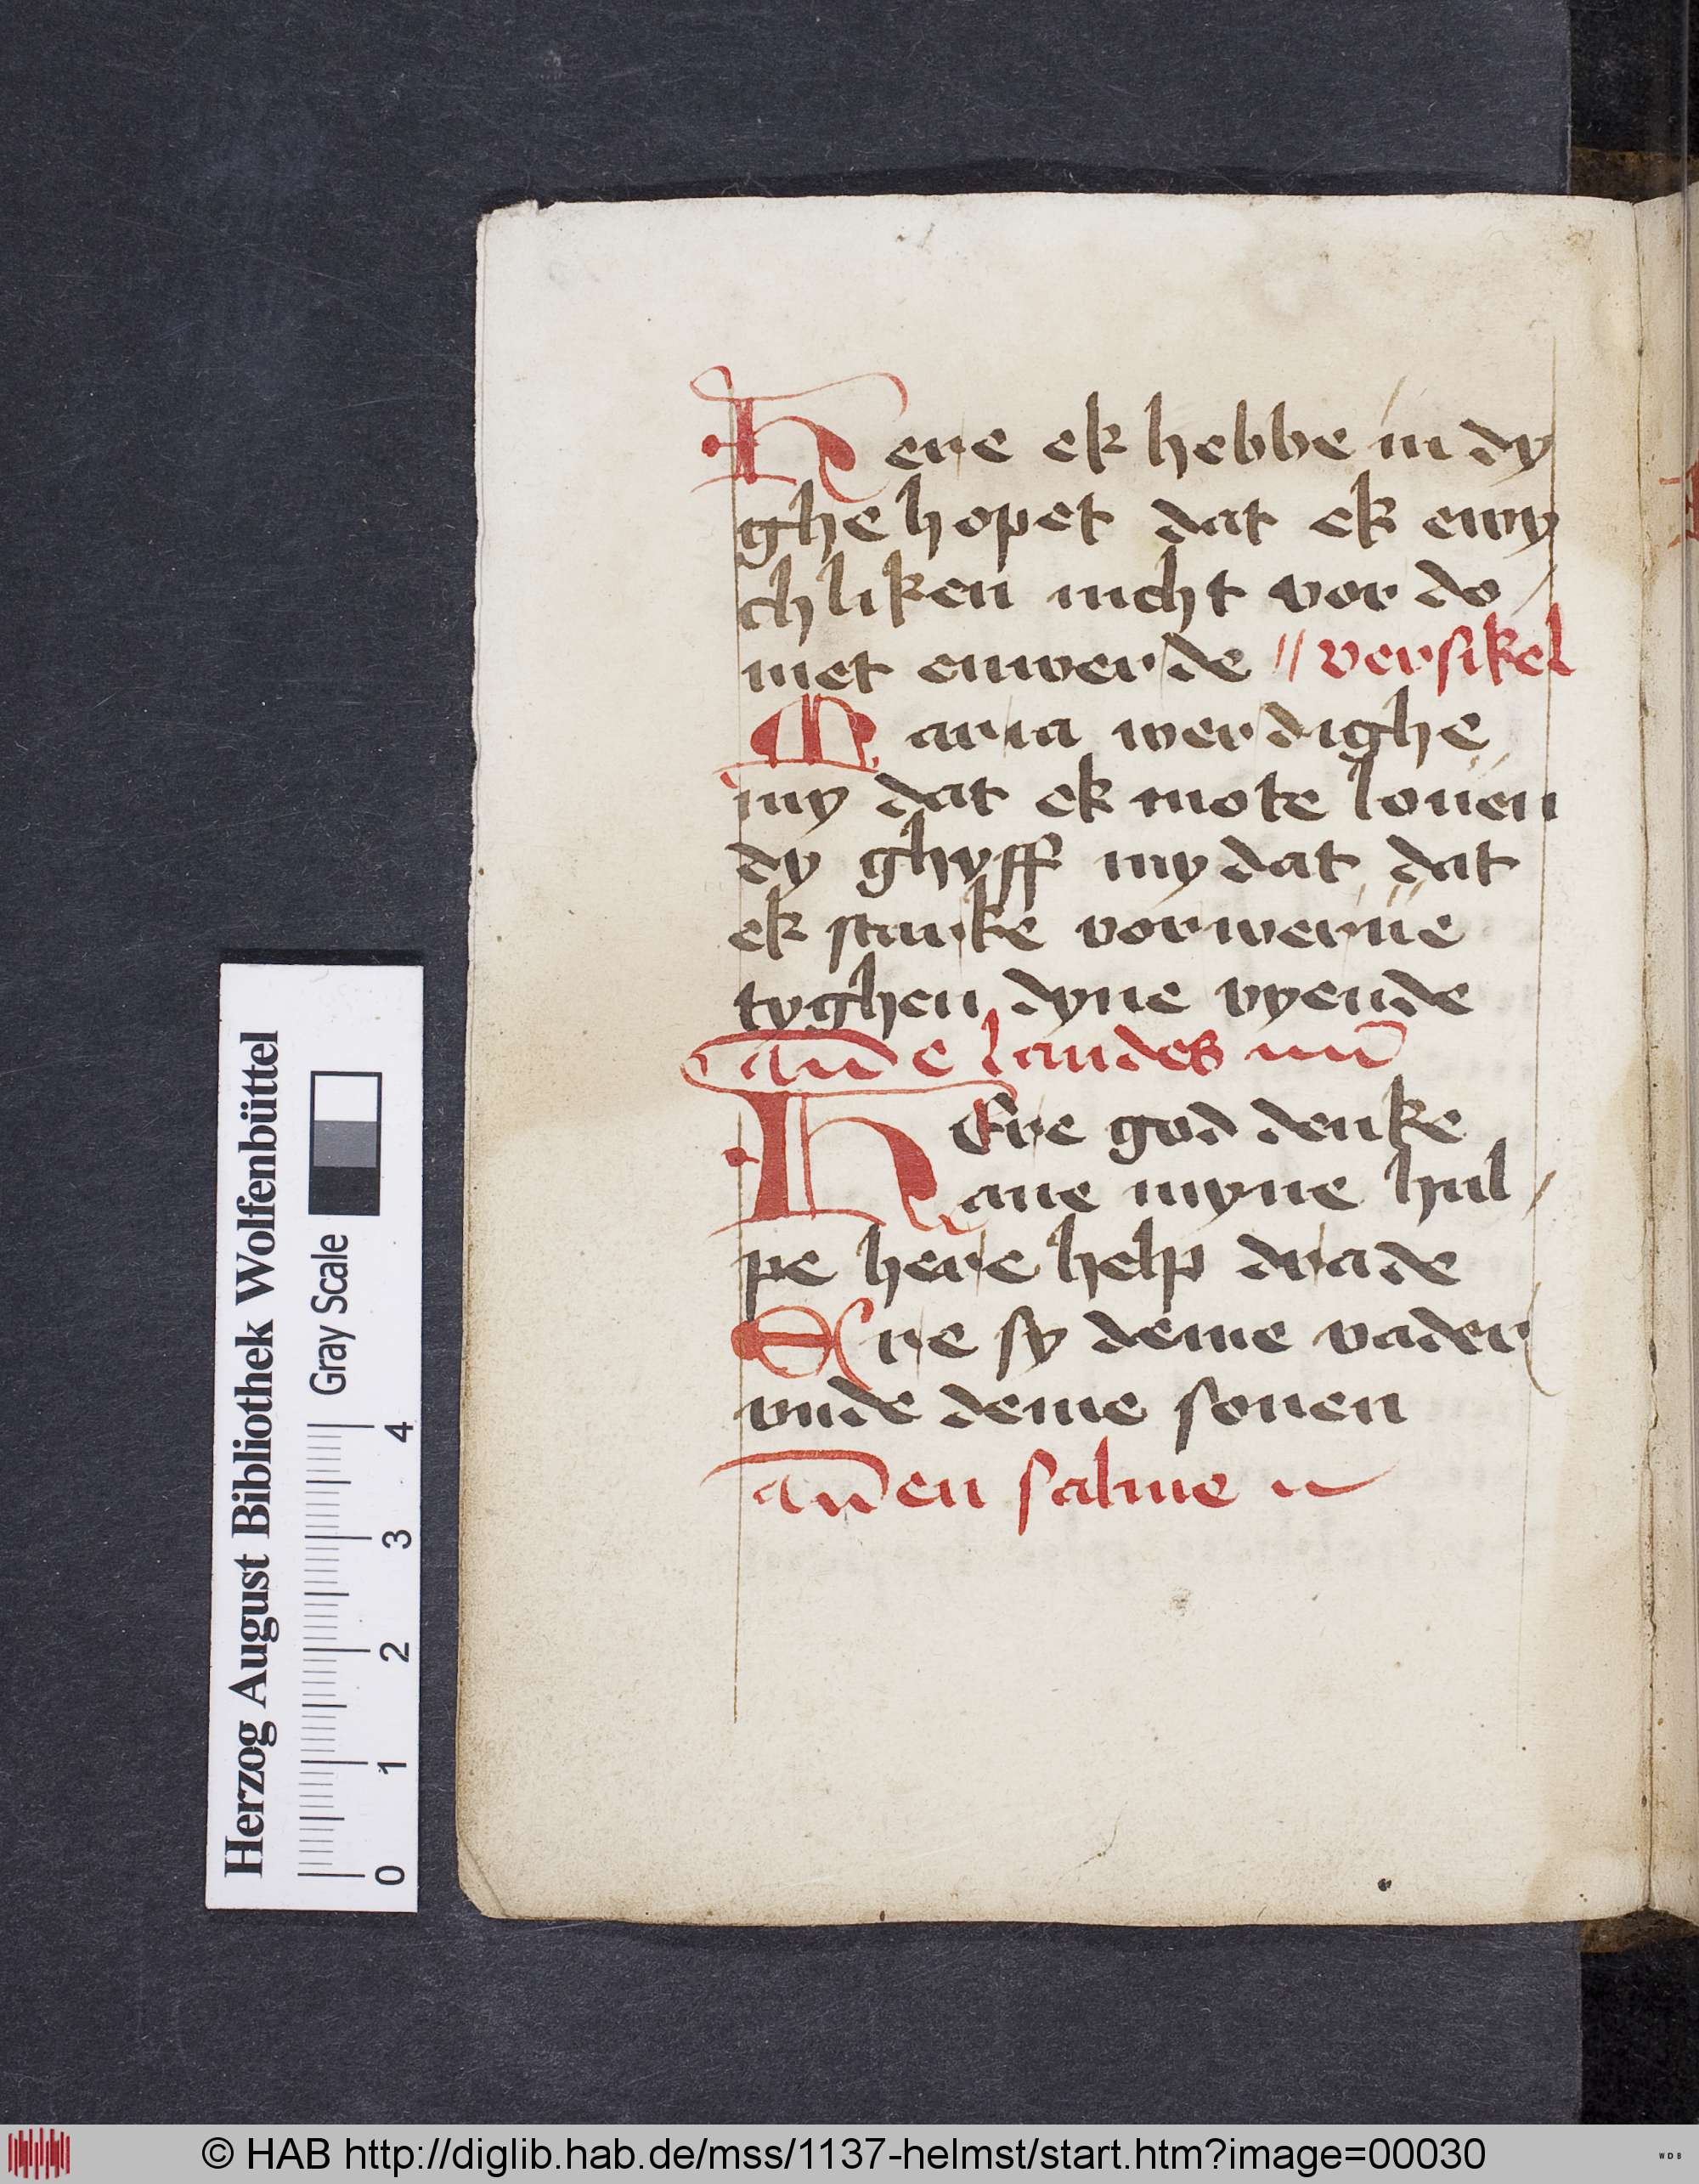 Here ek hebbe in dy
ghehopet dat ek ewy
chliken nicht vor do
met enwerde // versikel
Maria werdighe
my dat ek mote louen
dy ghyff my dat dat
ek starke vorwerue
tyghen dyne vyende
laudes
HEre god denke
ane myne hul
pe here help drade
Ere sy deme vader
vnde deme sonen
en salme
Herzog August Bibliothek Wolfenbüttel
Gray Scale
0 1 2 3 4
© HAB http://diglib.hab.de/mss/1137-helmst/start.htm?image=00030
WDB